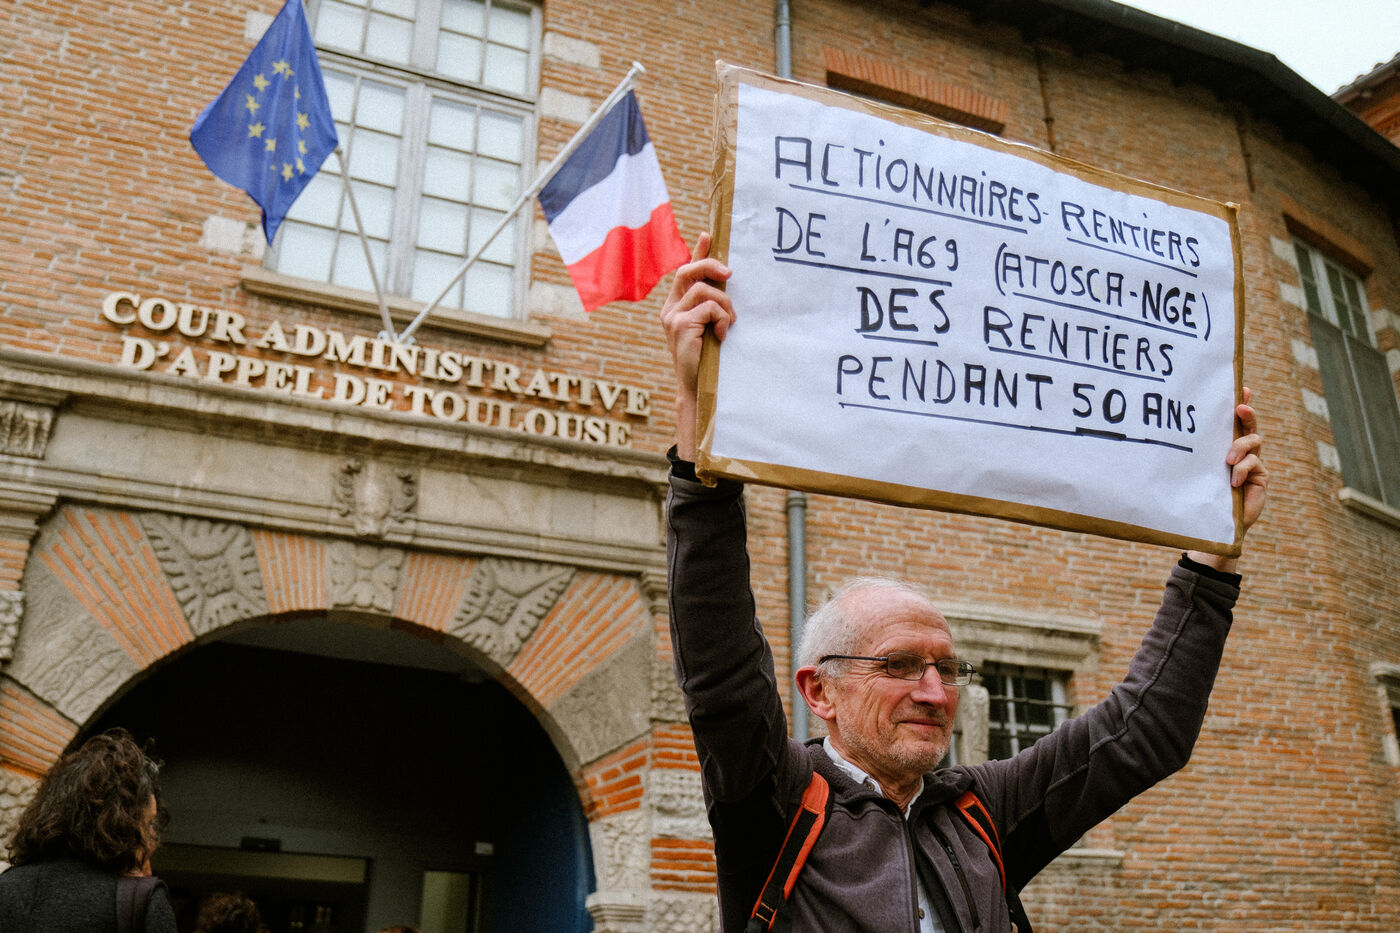 COUR ADMINISTRATIVE
D'APPEL DE TOULOUSE
ACTIONNAIRES-RENTIERS
DE L'A69 (ATOSCA-NGE)
DES RENTIERS
PENDANT 50 ANS